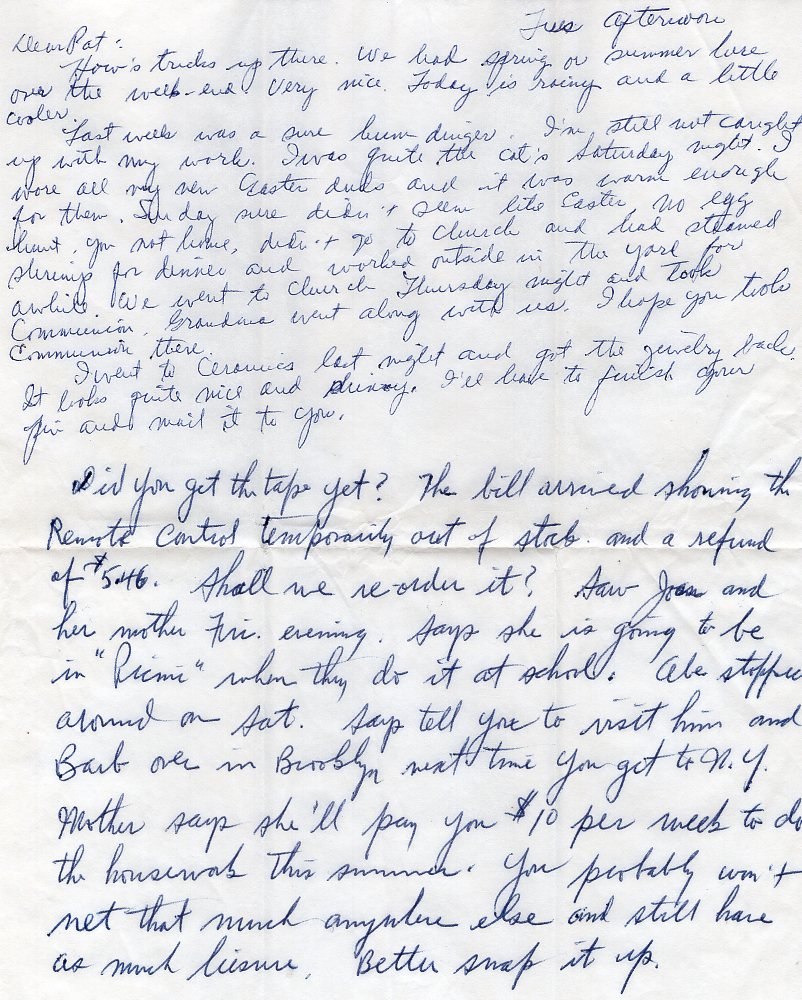 Tues Afternoon
Dear Pat:
How's tricks up there. We had spring or summer here
over the week-end. Very nice. Today is rainy and a little
cooler.
Last week was a sure hum dinger. I'm still not caught
up with my work. I was quite the cat's Saturday night. I
wore all my new Easter duds and it was warm enough
for them. Sunday sure didn't seem like Easter, no egg
hunt, you not home, didn't go to church and had steamed
shrimp for dinner and worked outside in the yard for
awhile. We went to Church Thursday night and Took
Communion. Grandma went along with us. I hope you took
Communion there.
I went to Ceramics last night and got the jewelry back.
It looks quite nice and shiney. I'll have to finish your
pin and mail it to you.
Did you get the tape yet? The bill arrived showing the
Remote Control temporarily out of stock and a refund
of $5.46. Shall we re-order it? Saw Joan and
her mother Fri. evening. Says she is going to be
in "Picnic" when they do it at school. Abe stopped
around on Sat. Says tell you to visit him and
Barb over in Brooklyn next time you get to N.Y.
Mother says she'll pay you $10 per week to do
the housework this summer. You probably won't
net that much anywhere else and still have
as much liesure. Better snap it up.